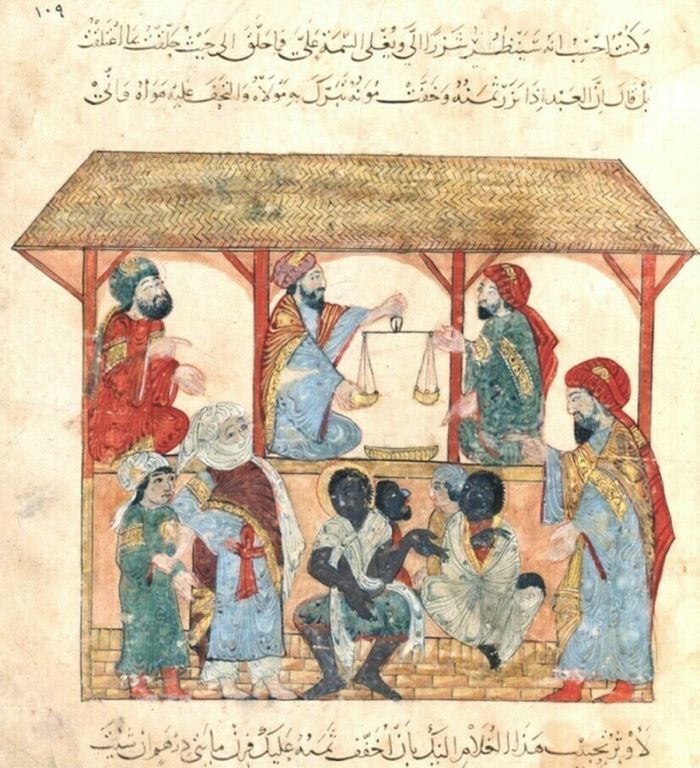 ١٠٩
وكنت احسب انه سينظر شزرا الي ويغلى السيمة علي فما حلق الى حيث حلقت اعتلقت
بل قال ان العبد اذا نزر ثمنه وخفت مونه تبرك به مولاه والتحف عليه هواه واني
لاوثر تحبيب هذا الغلام اليك بان اخفف ثمنه عليك فزن مايتي درهم ان شيت